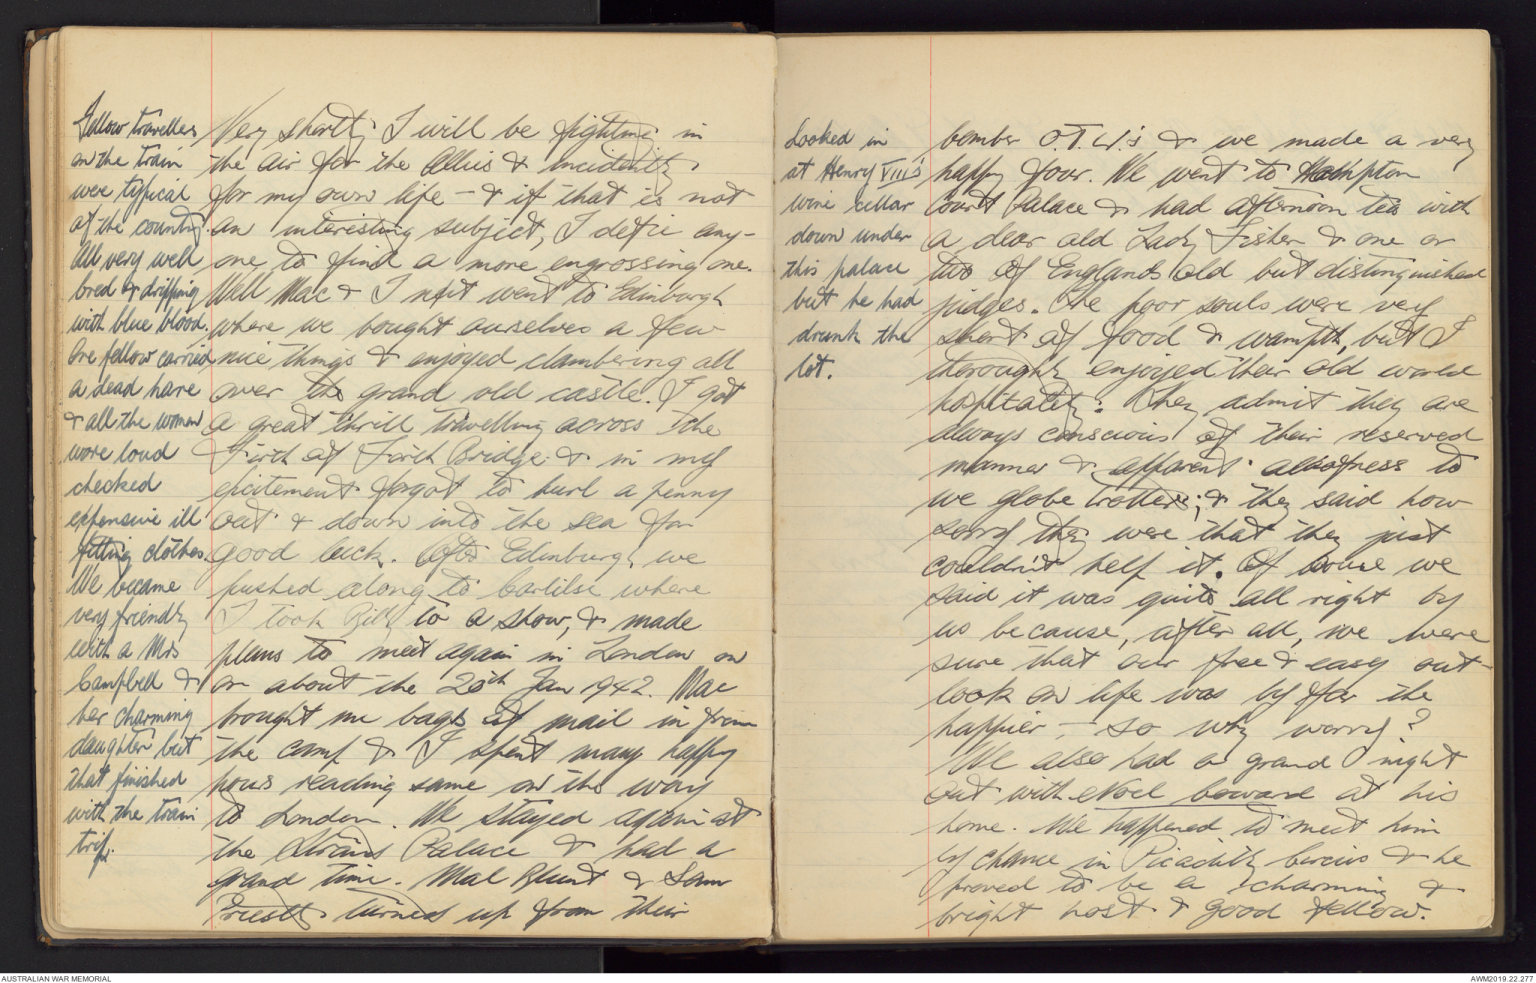 Fellow travellers
on the train
were typical
of the country.
All very well
bred & dripping
with blue blood.
One fellow carried
a dead hare
& all the women
wore loud
checked
expensive ill
fitting clothes.
We became
very friendly
with a Mrs
Campbell &
her charming
daughter but
that finished
with the train
trip.
Very shortly I will be fighting in
the air for the Allies & incidently
for my own life – & if that is not
an interesting subject, I defie any-
one to find a more engrossing one.
Well Mac & I next went to Edinburgh
where we bought ourselves a few
nice things & enjoyed clambering all
over the grand old castle. I got
a great thrill travelling across the
Firth of Forth Bridge & in my
excitement forgot to hurl a penny
out & down into the sea for
good luck. After Edinburgh we
pushed along to Carlilse where
I took Billy to a show, & made
plans to meet again in London on
or about the 20th Jan 1942. Mac
brought me bags of mail in from
the camp & I spent many happy
hours reading same on the way
to London. We stayed again at
the Strand Palace & had a
grand time. Mal Blunt & Sam
Priestly turned up from their
Looked in
at Henry VIII's
wine cellar
down under
this palace
but he had
drunk the
lot.
bomber O.T.U.'s & we made a very
happy four. We went to Hampton
Court Palace & had afternoon tea with
a dear old Lady Fisher & one or
two of Englands old but distinguished
judges. The poor souls were very
short of food & warmpth, but I
thoroughly enjoyed their old world
hospitality. They admit they are
always conscious of their reserved
manner & apparent aloofness to
we globe trotters; & they said how
sorry they were that they just
couldn't help it. Of course we
said it was quite all right by
us because, after all, we were
sure that our free & easy out-
look on life was by far the
happier – so why worry?
We also had a grand night
out with Noel Coward at his
home. We happened to meet him
by chance in Picadilly Circus & he
proved to be a charming &
bright host & good fellow.
AUSTRALIAN WAR MEMORIAL
AWM2019.22.277